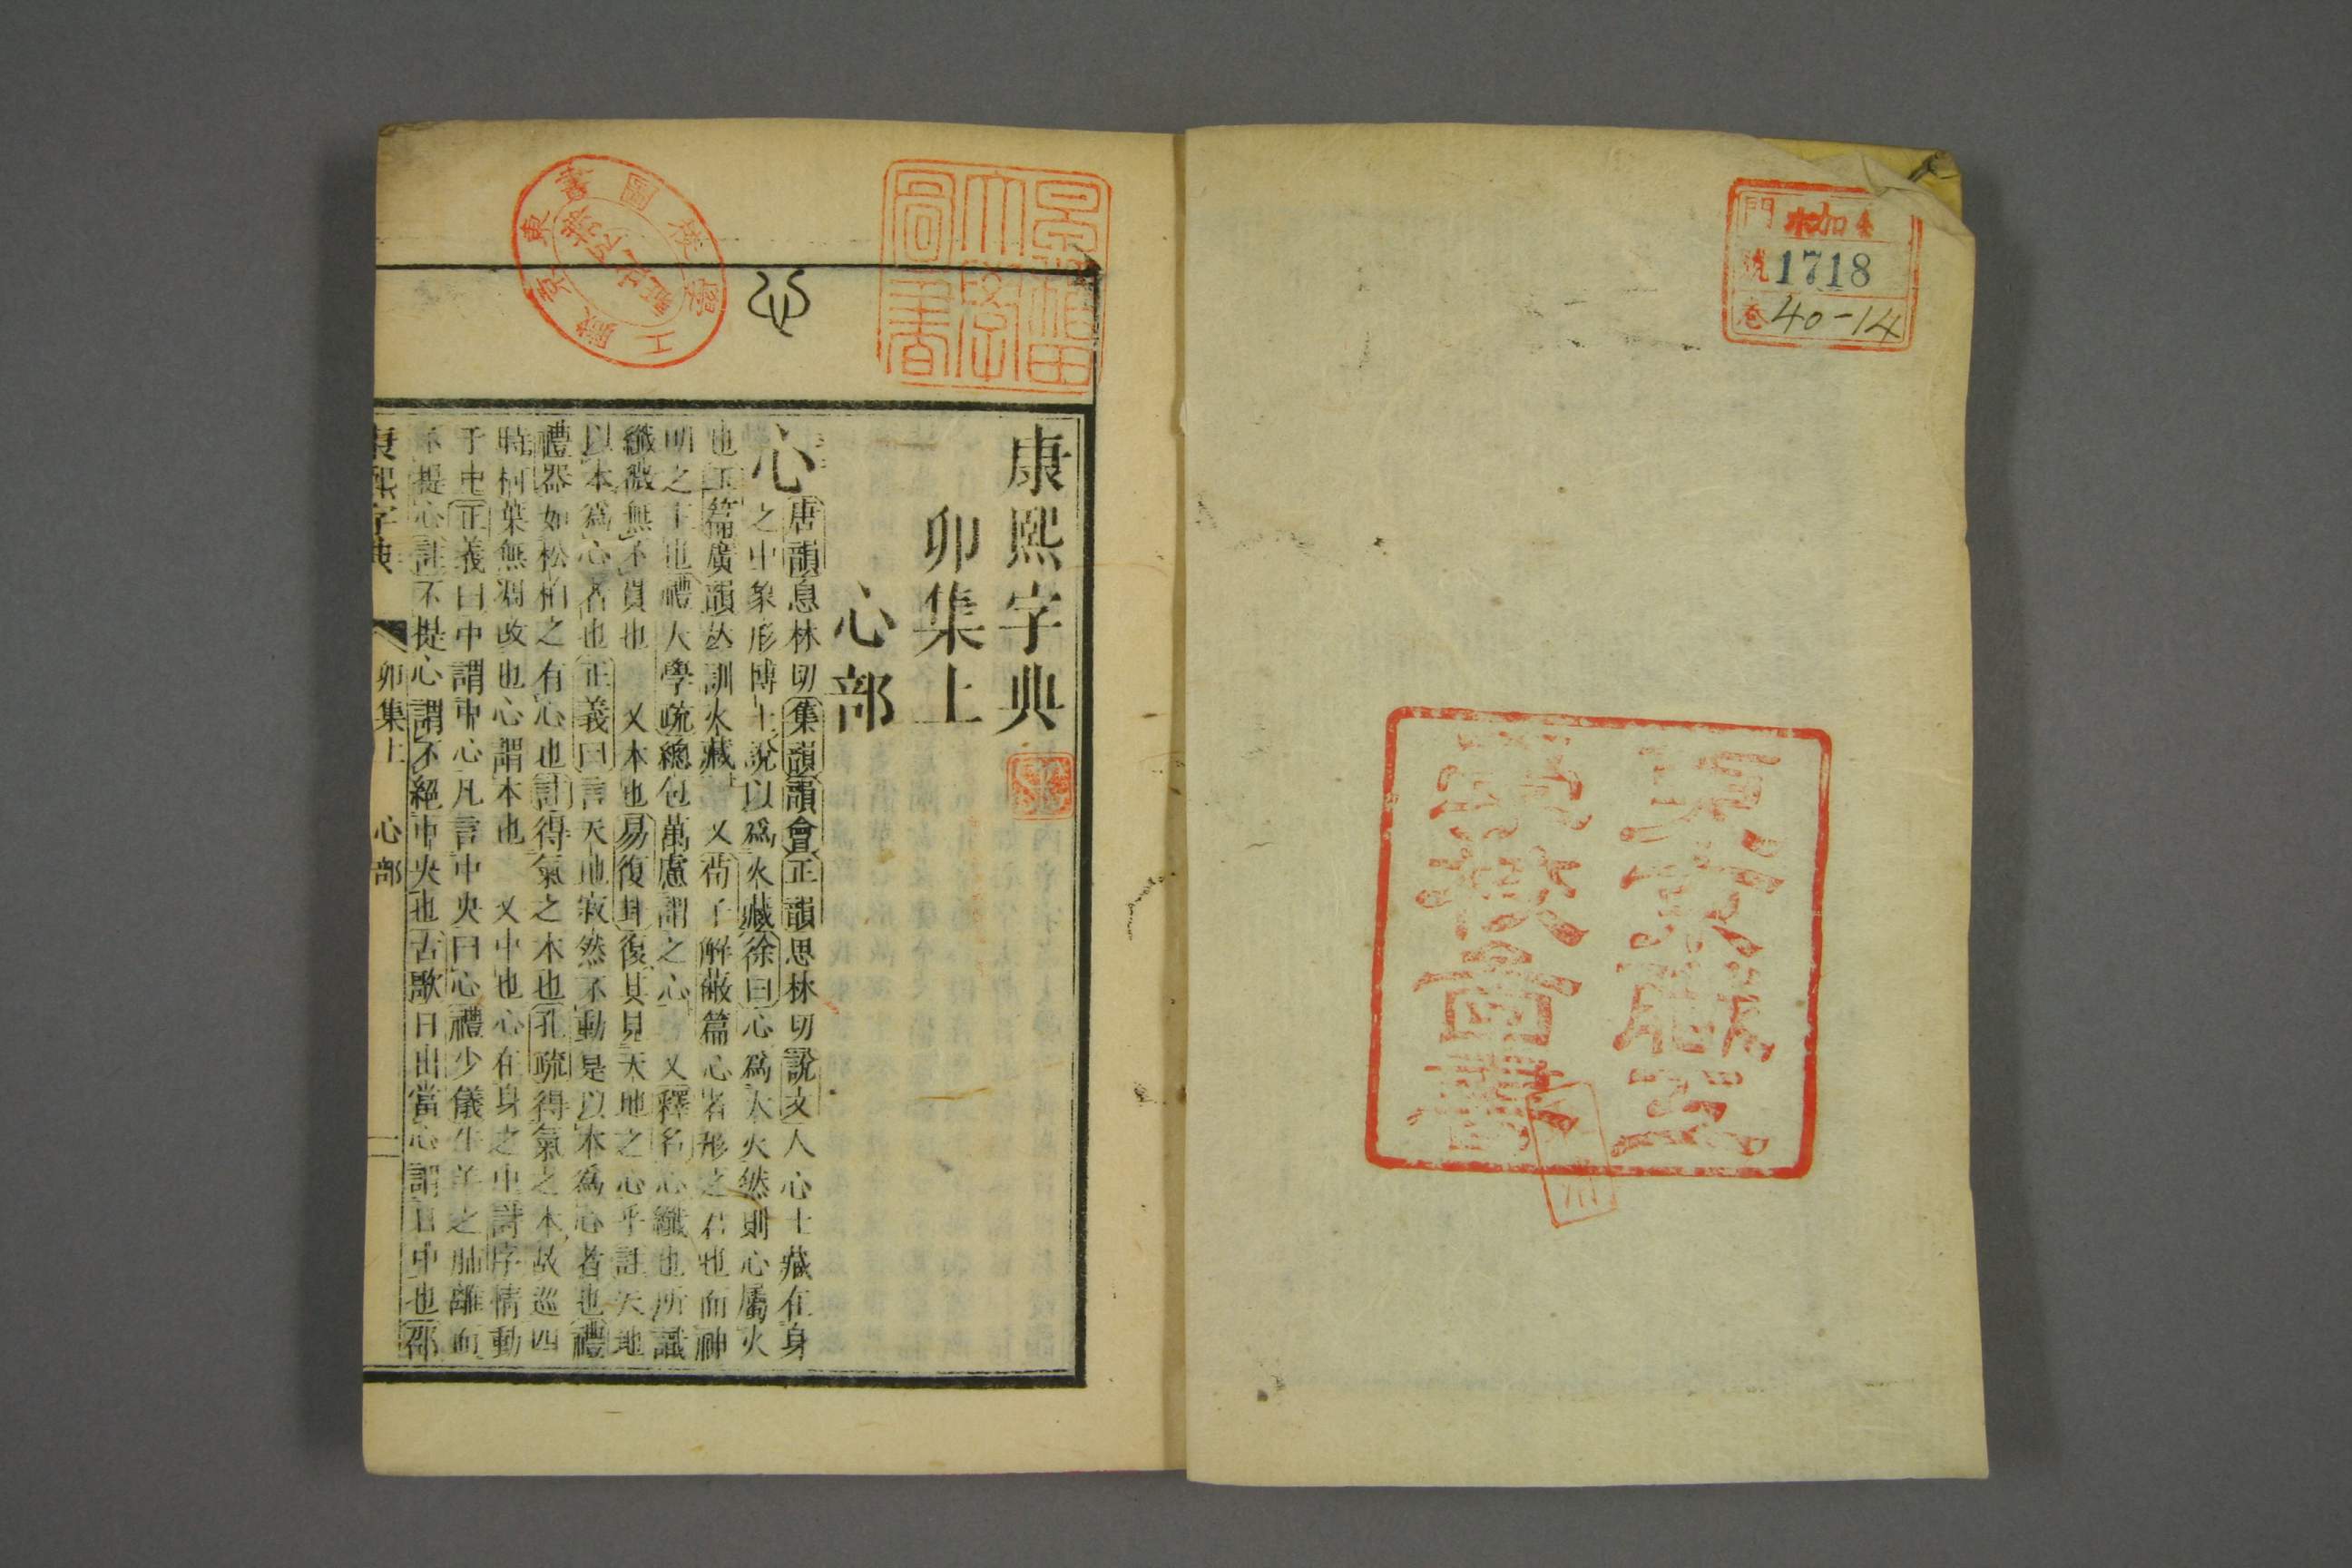 門
號 1718
卷 40-14
東京職工
學校圖書
早稲田
大學
圖書
東京職工學校圖書
心
康熙字典
卯集上
心部
心 唐韻息林切集韻韻會正韻思林切說文人心土藏在身
之中象形博士說以爲火藏徐曰心爲大火然則心屬火
也玉篇廣韻𠀤訓火藏 又荀子解蔽篇心者形之君也而神
明之主也禮大學疏總包萬慮謂之心 又釋名心纖也所識
纖微無不貫也 又本也易復卦復其見天地之心乎註天地
以本爲心者也正義曰言天地寂然不動是以本爲心者也禮
禮器如松柏之有心也註得氣之本也孔疏得氣之本故巡四
時柯葉無凋改也心謂本也 又中也心在身之中詩序情動
于中正義曰中謂中心凡言中央曰心禮少儀牛羊之肺離而
不提心註不提心謂不絕中央也古歌日出當心謂日中也邵
康熙字典 卯集上 心部 二